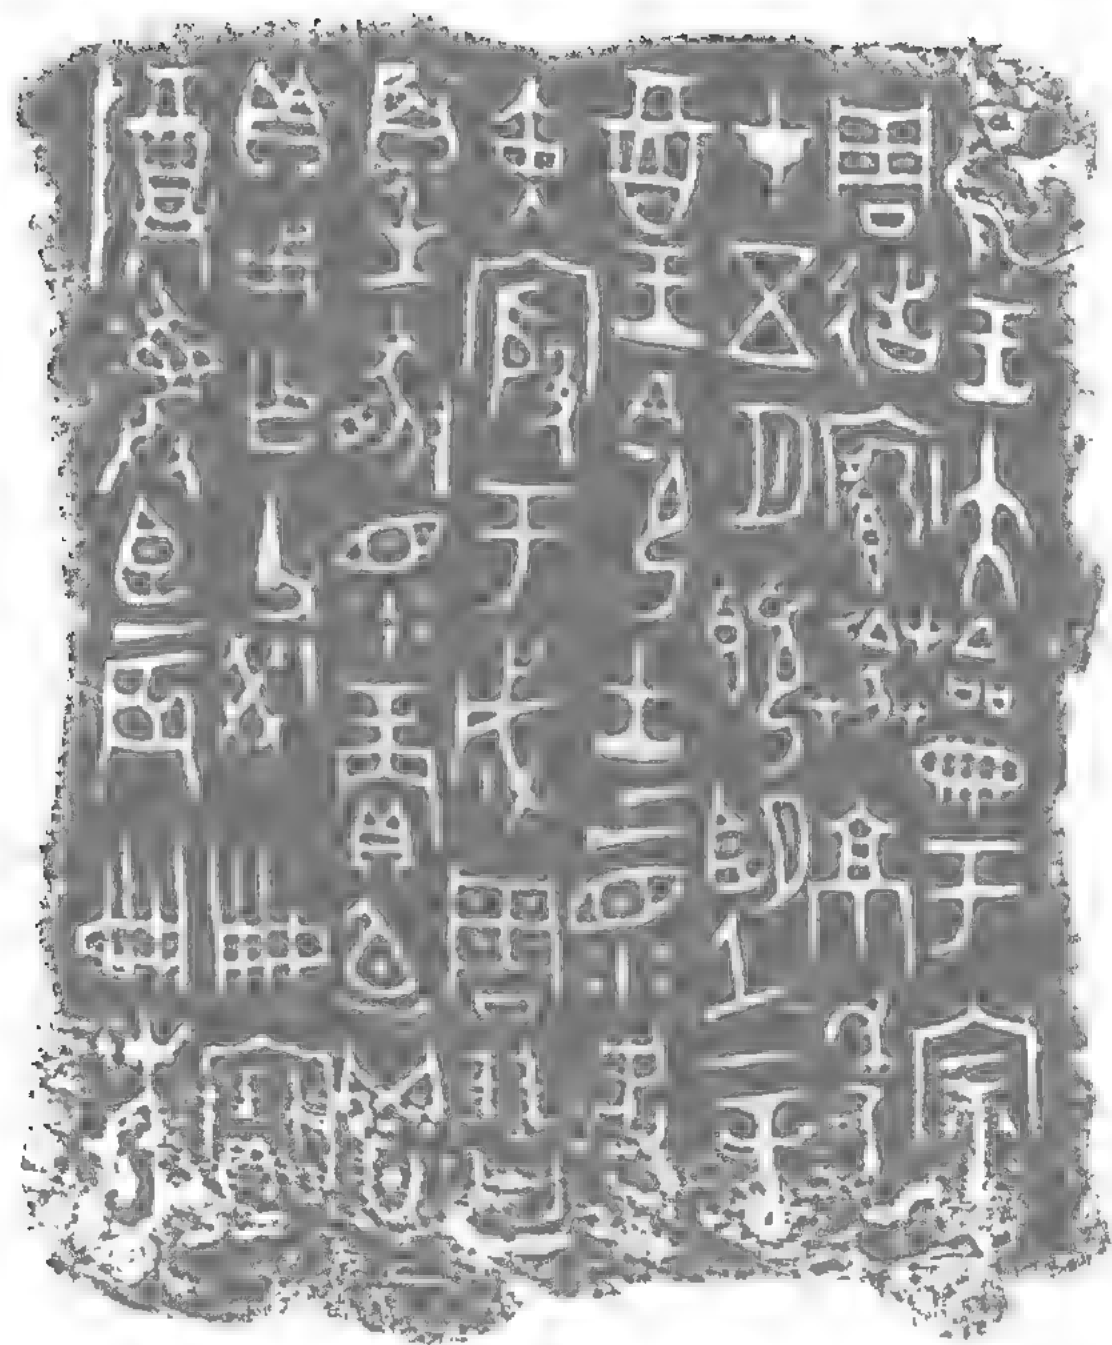 隹王大龠于宗
周𢓊𩜁𦮼京年
才五月既望辛
酉王令士上眔史
寅殷于成周
百生豚眔賞卣鬯
貝用乍父癸寶
尊彝臣辰冊冊先